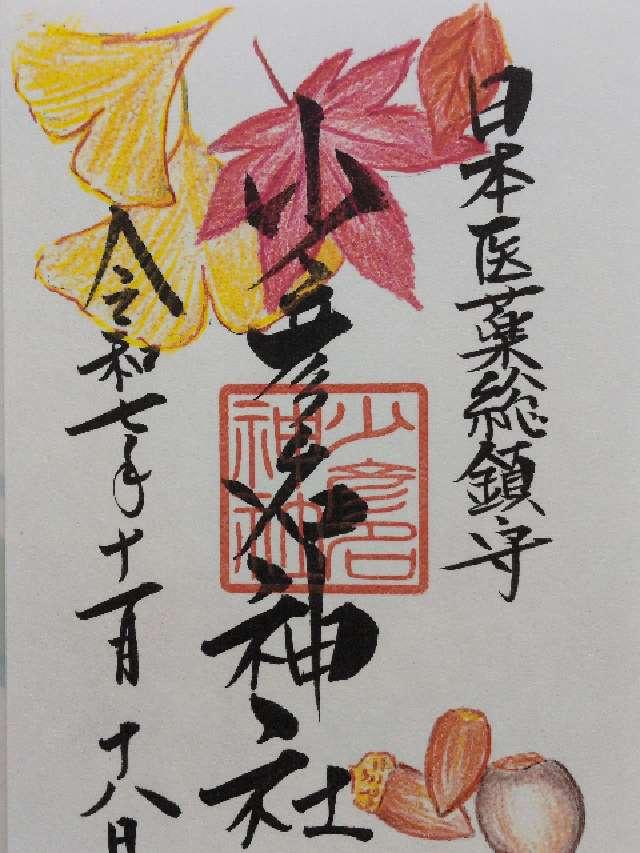 日本医薬総鎮守
少彦名神社
少彦名
神社
令和七年十一月十八日